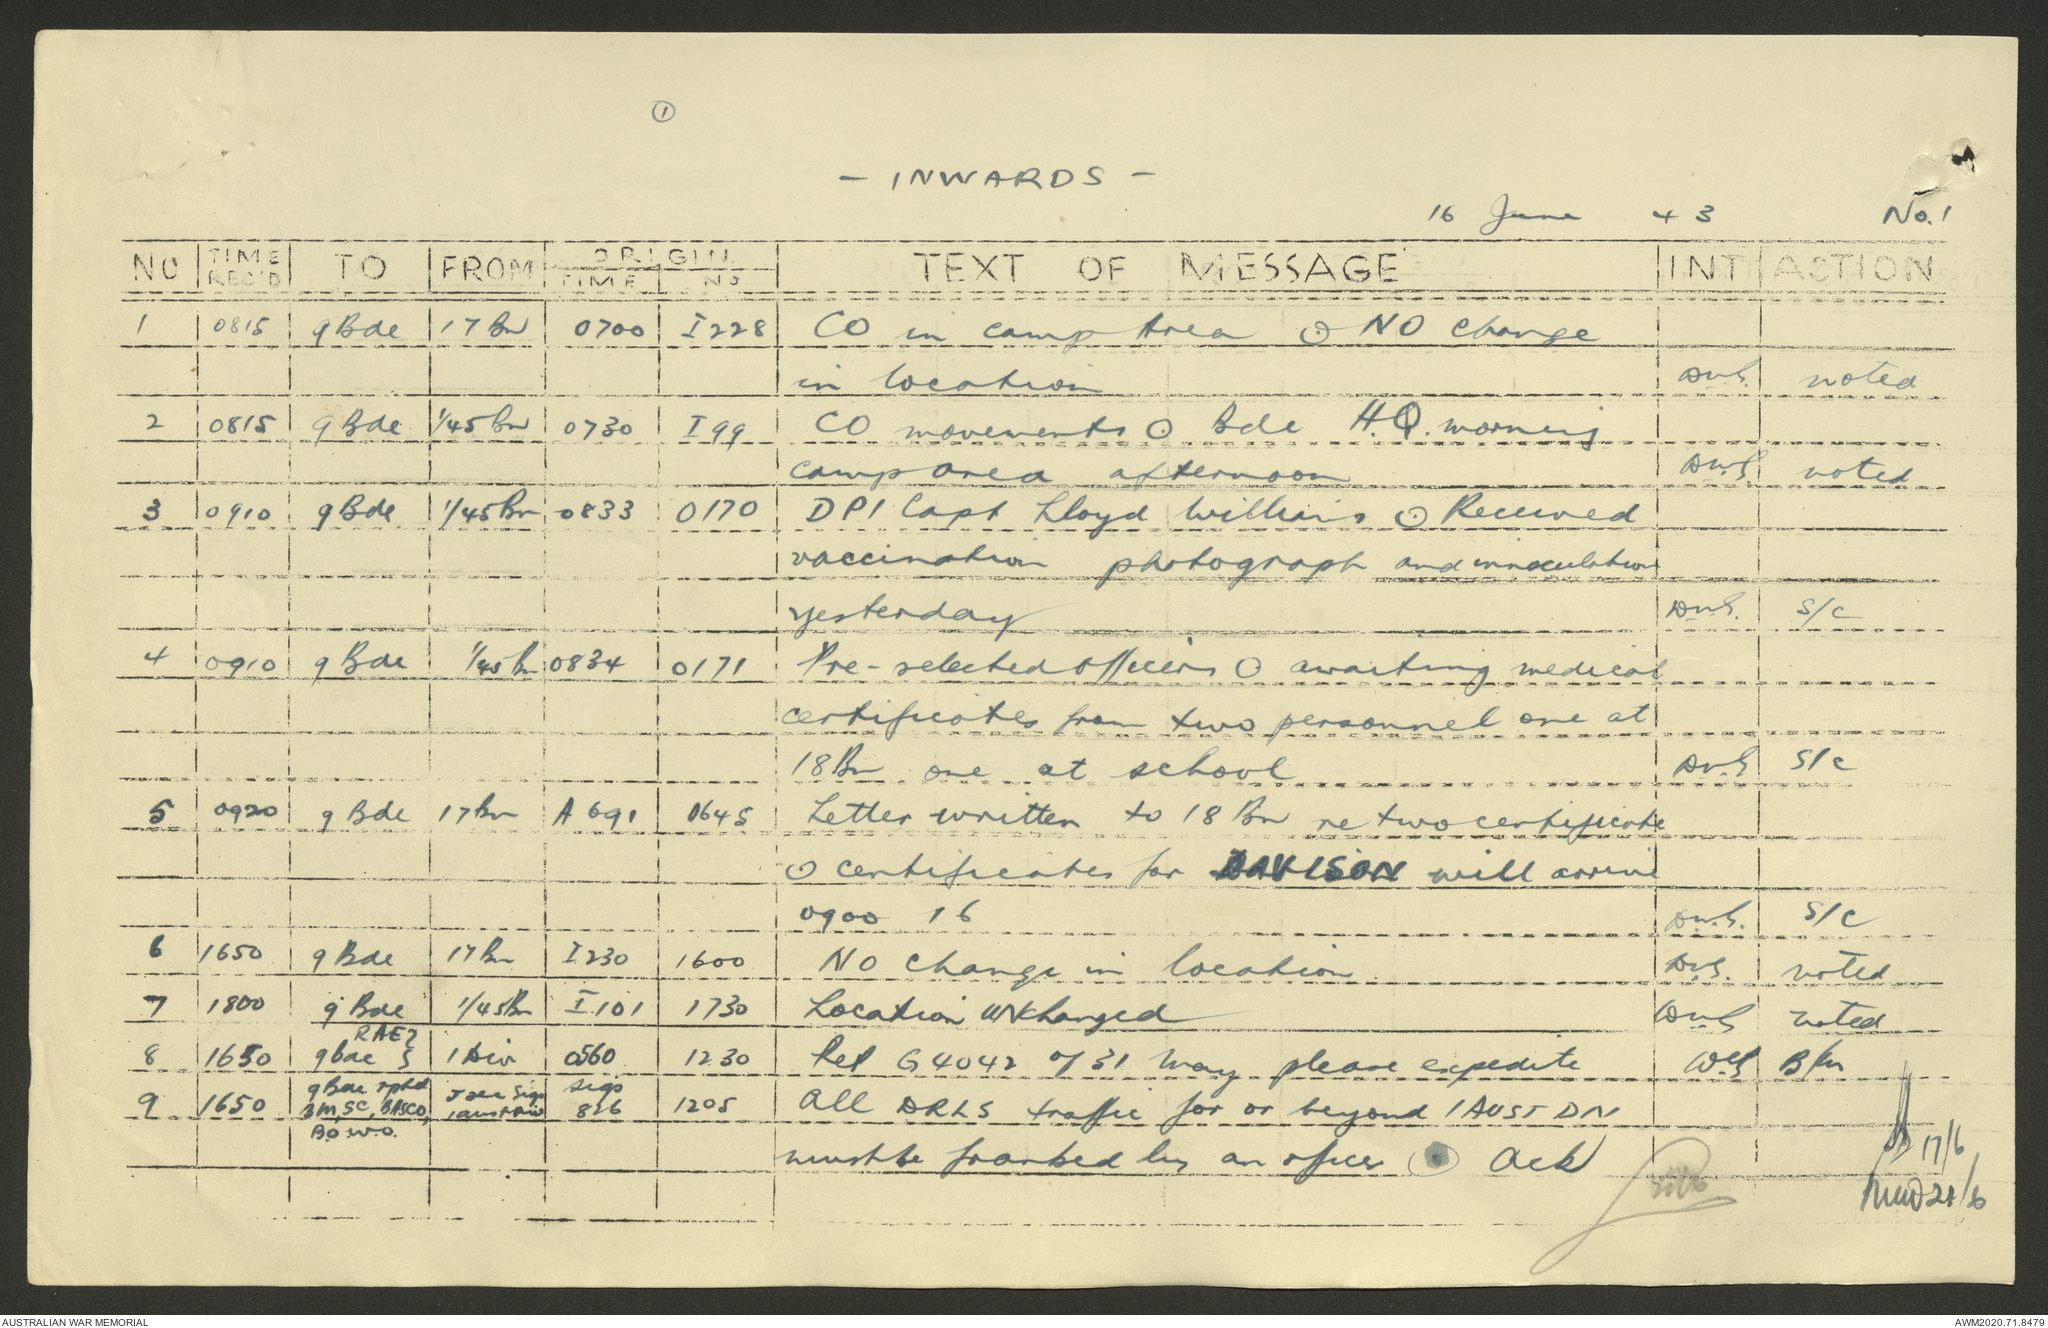 ①
- INWARDS -
16 June 43 No. 1
NO TIME REC'D TO FROM ORIGIN TIME NO TEXT OF MESSAGE INT ACTION
1 0815 9 Bde 17 Bn 0700 I228 CO in camp Area ⊙ NO change
in location DWS. noted
2 0815 9 Bde 1/45 Bn 0730 I99 CO movements ⊙ Bde H.Q. morning
camp area afternoon DWS noted
3 0910 9 Bde 1/45 Bn 0833 0170 DP1 Capt Lloyd Williams ⊙ Received
vaccination photograph and innoculation
yesterday DWS. S/C
4 0910 9 Bde 1/45 Bn 0834 0171 Pre-selected officers ⊙ awaiting medical
certificates from two personnel one at
18 Bn one at school DWS S/C
5 0920 9 Bde 17 Bn A 691 0645 Letter written to 18 Bn re two certificate
⊙ certificates for DAVISON will arrive
0900 16 DWS. S/C
6 1650 9 Bde 17 Bn I230 1600 NO change in location DWS. noted
7 1800 9 Bde 1/45 Bn I101 1730 Location unchanged DWS noted
RAE}
8 1650 9 bde } 1 Div 0560 1230 Ref G4042 of 31 May please expedite B/M
9 1650 9 Bde rptd BM, SC, BASCO, 1 Aust Div Sigs 826 1205 All DRLS traffic for or beyond 1 AUST DIV
B.O.W.O. must be franked by an officer ⊙ Ack
17/6
21/6
AUSTRALIAN WAR MEMORIAL AWM2020.71.8479